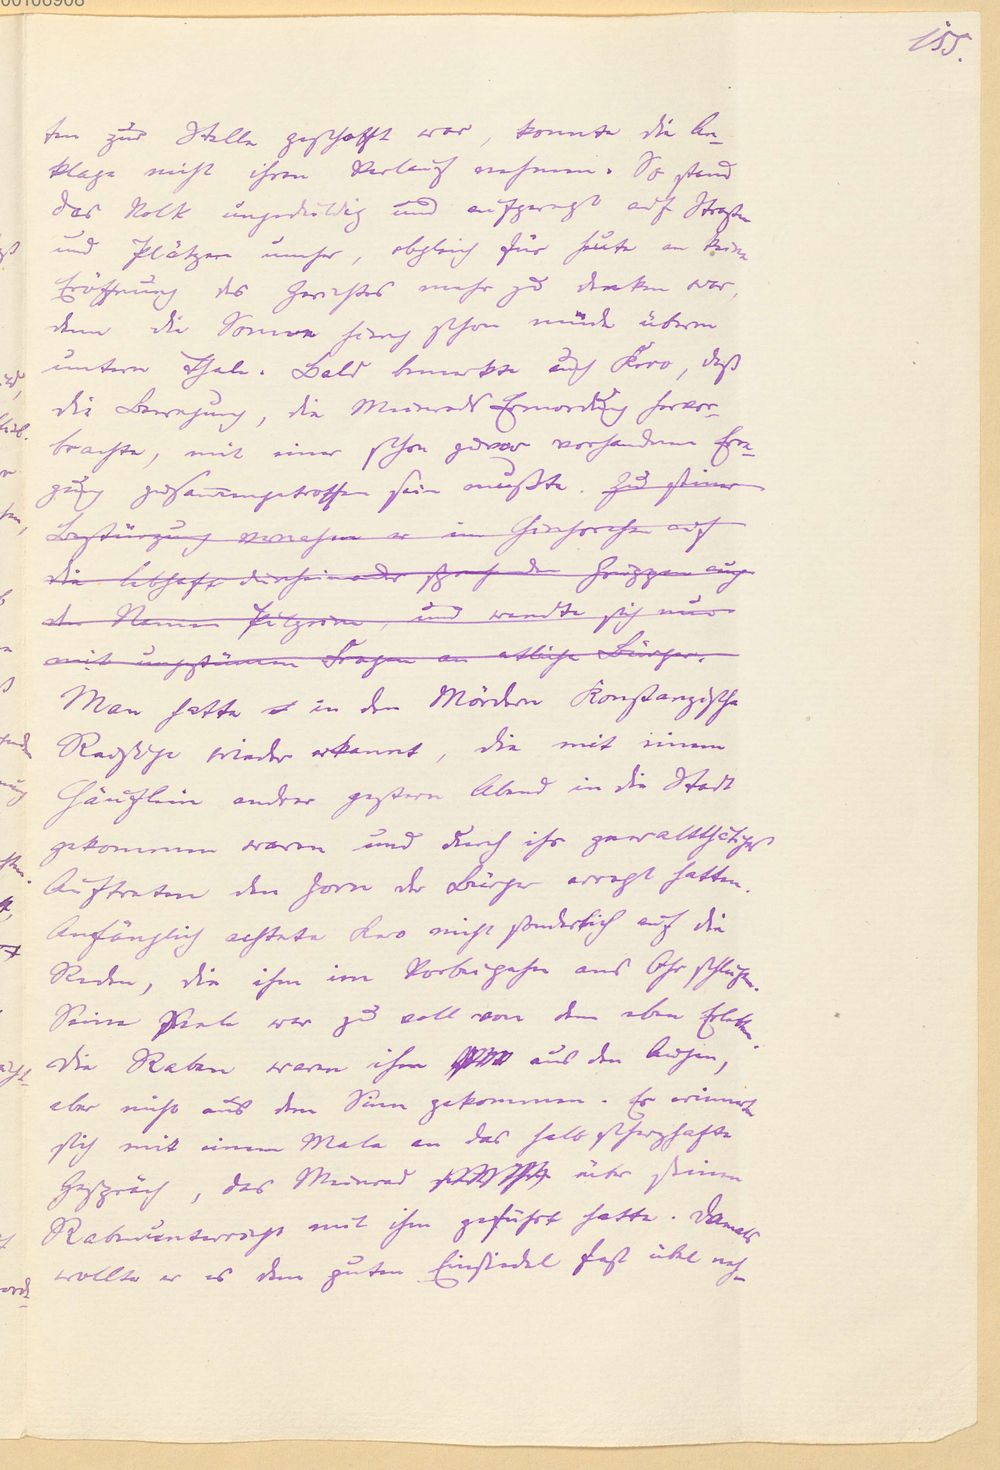 00106908
155.
ten zur Stelle geschafft war, konnte die An-
klage nicht ihren Verlauf nehmen. So stand
das Volk ungeduldig und aufgeregt auf Straßen
und Plätzen umher, obgleich für heute an keine
Eröffnung des Gerichtes mehr zu denken war,
denn die Sonne hieng schon müde überm
untern Thale. Bald bemerkte auch Kero, daß
die Bewegung, die Meinrads Ermordung hervor-
brachte, mit einer schon zuvor vorhandenen Erre-
gung zusammengetroffen sein mußte. Zu seiner
Bestürzung vernahm er im Hinhorchen auf
die lebhaft durcheinander sprechenden Gruppen auch
den Namen Pilgrim, und wandte sich nun
mit ungestümen Fragen an etliche Bürger.
Man hatte in den Mördern Konstanzische
Reisige wieder erkannt, die mit einem
Häuflein andrer gestern Abend in die Stadt
gekommen waren und durch ihr gewaltthätiges
Auftreten den Zorn der Bürger erregt hatten.
Anfänglich achtete Kero nicht sonderlich auf die
Reden, die ihm im Vorbeigehn ans Ohr schlugen.
Seine Seele war zu voll von dem eben Erlebten.
Die Raben waren ihm aus den Augen,
aber nicht aus dem Sinn gekommen. Er erinnerte
sich mit einem Male an das halb scherzhafte
Gespräch, das Meinrad über seinen
Rabenunterricht mit ihm geführt hatte. Damals
wollte er es dem guten Einsiedel fast übel neh-